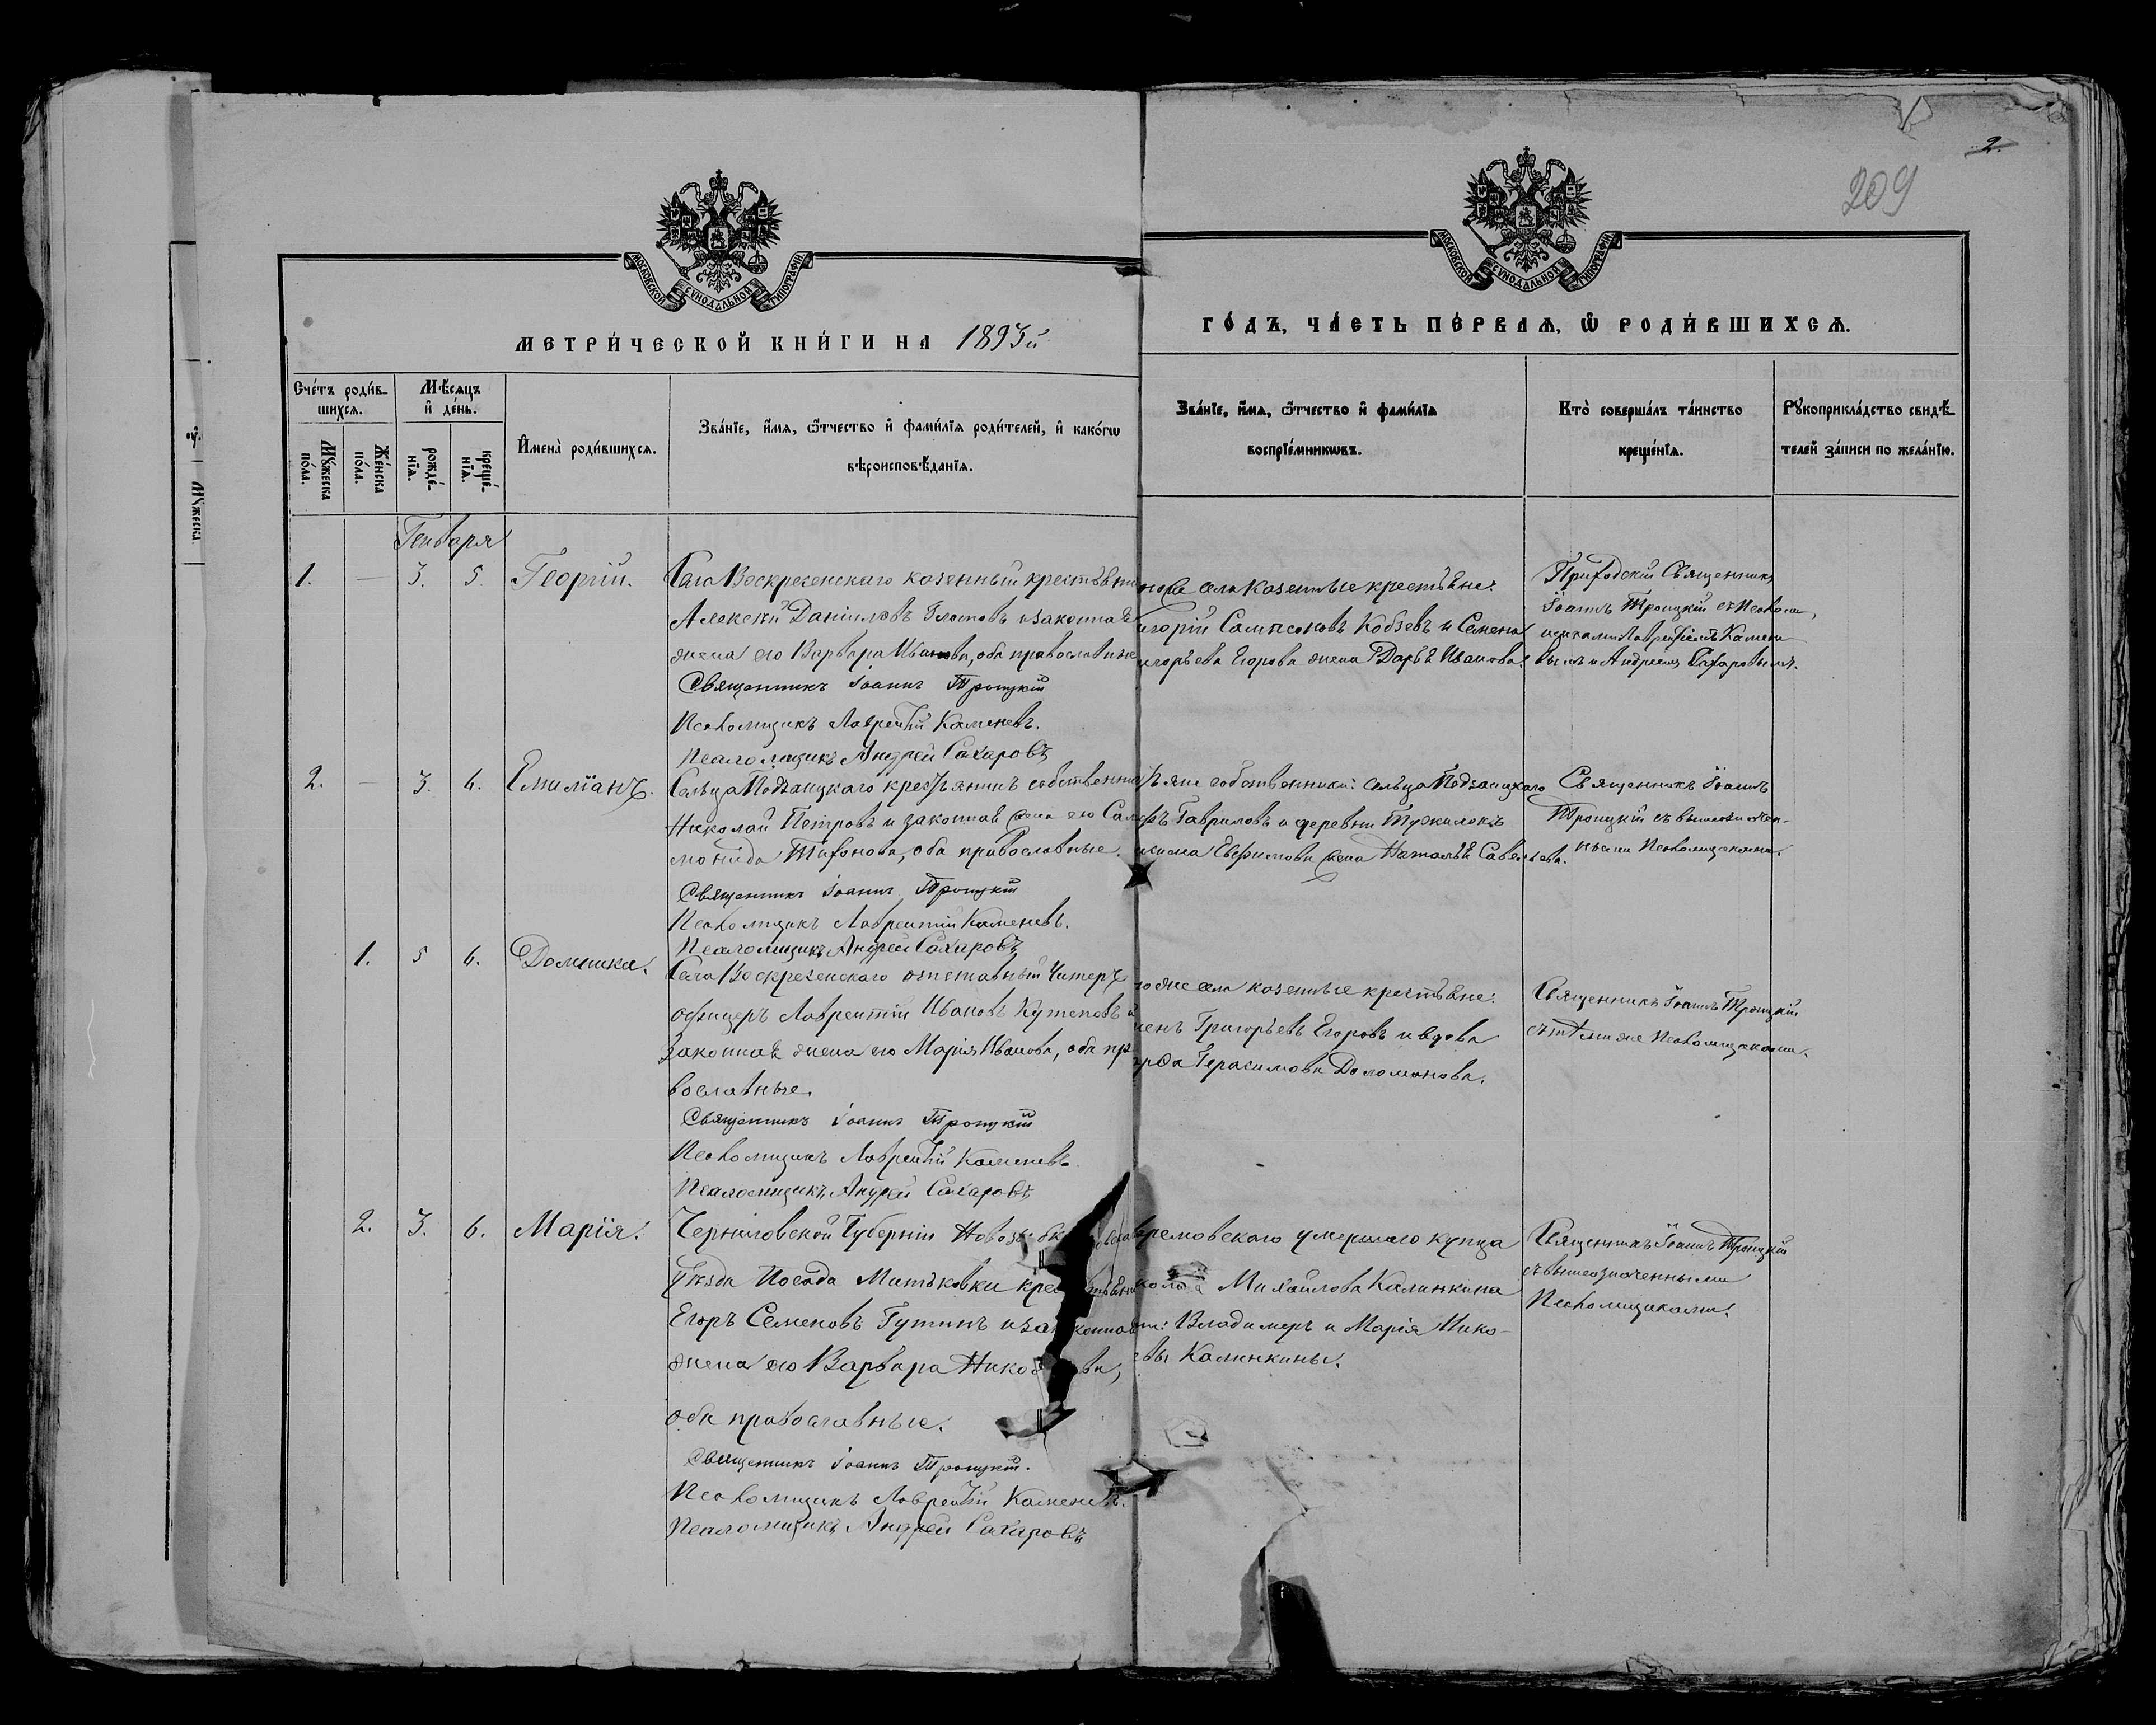 2.
209
МОСКОВСКОЙ СѴНОДАЛЬНОЙ ТИПОГРАФІИ
МОСКОВСКОЙ СѴНОДАЛЬНОЙ ТИПОГРАФІИ
МЕТРИ́ЧЕСКОЙ КНИ́ГИ НА 1893й
ГО́ДЪ, ЧА́СТЬ ПЕ́РВАЯ, Ѿ РОДИ́ВШИХСЯ.
Сче́тъ роди́в-
шихся.
Мѣ́сяцъ
и҆ де́нь.
Му́жеска
по́ла.
Же́нска
по́ла.
рожде́-
нїя.
креще́-
нїя.
И҆мена̀ роди́вшихся.
Зва́нїе, и҆́мя, ѻ҆́тчество и҆ фами́лїя роди́телей, и҆ како́гѡ
вѣроисповѣ́данїя.
Зва́нїе, и҆́мя, ѻ҆́тчество и҆ фами́лїя
воспрїе́мникѡвъ.
Кто̀ соверша́лъ та́инство
креще́нїя.
Рукоприкла́дство свидѣ́-
телей за́писи по жела́нїю.
Генваря
1. — 3. 5. Георгій.
Села Воскресенскаго казенный крестьянинъ
Алексѣй Даніиловъ Глотовъ и законная
жена его Варвара Иванова, оба православные
Священникъ Іоаннъ Троицкій
Псаломщикъ Лаврентій Каменевъ.
Псаломщикъ Андрей Сахаровъ
села казенные крестьяне:
Сампсоновъ Кобзевъ и Семена
Егорова жена Дарья Иванова.
Приходскій Священникъ
Іоаннъ Троицкій съ Псаломщиками
Лаврентіемъ Камене-
вымъ и Андреемъ Сахаровымъ.
2. — 3. 6. Емиліанъ.
Сельца Подзацкаго крестьянинъ собственникъ
Николай Петровъ и законная жена его
Тихонова, оба православные.
Священникъ Іоаннъ Троицкій
Псаломщикъ Лаврентій Каменевъ.
Псаломщикъ Андрей Сахаровъ
собственники: сельца Подзацкаго
Гавриловъ и деревни Тужилокъ
Евфимова жена Наталья Савельева.
Священникъ Іоаннъ
Троицкій съ вышеозначен-
ными Псаломщиками.
1. 5 6. Домника.
Села Воскресенскаго отставный Унтеръ
офицеръ Лаврентій Ивановъ Кутеповъ и
законная жена его Марія Иванова, оба пра
вославные.
Священникъ Іоаннъ Троицкій
Псаломщикъ Лаврентій Каменевъ
Псаломщикъ Андрей Сахаровъ
же села казенные крестьяне:
Григорьевъ Егоровъ и вдова
Герасимова Доломанова.
Священникъ Іоаннъ Троицкій
съ тѣми же Псаломщиками.
2. 3. 6. Марія.
Черниговской Губерніи
Уѣзда Посада Митьковки
Егоръ Семеновъ Гутинъ и законная
жена его Варвара
оба православные.
Священникъ Іоаннъ Троицкій.
Псаломщикъ Лаврентій Каменевъ.
Псаломщикъ Андрей Сахаровъ
умершаго купца
Михайлова Калинкина
Владимеръ и Марія Нико-
Калинкины.
Священникъ Іоаннъ Троицкій
съ вышеозначенными
Псаломщиками.